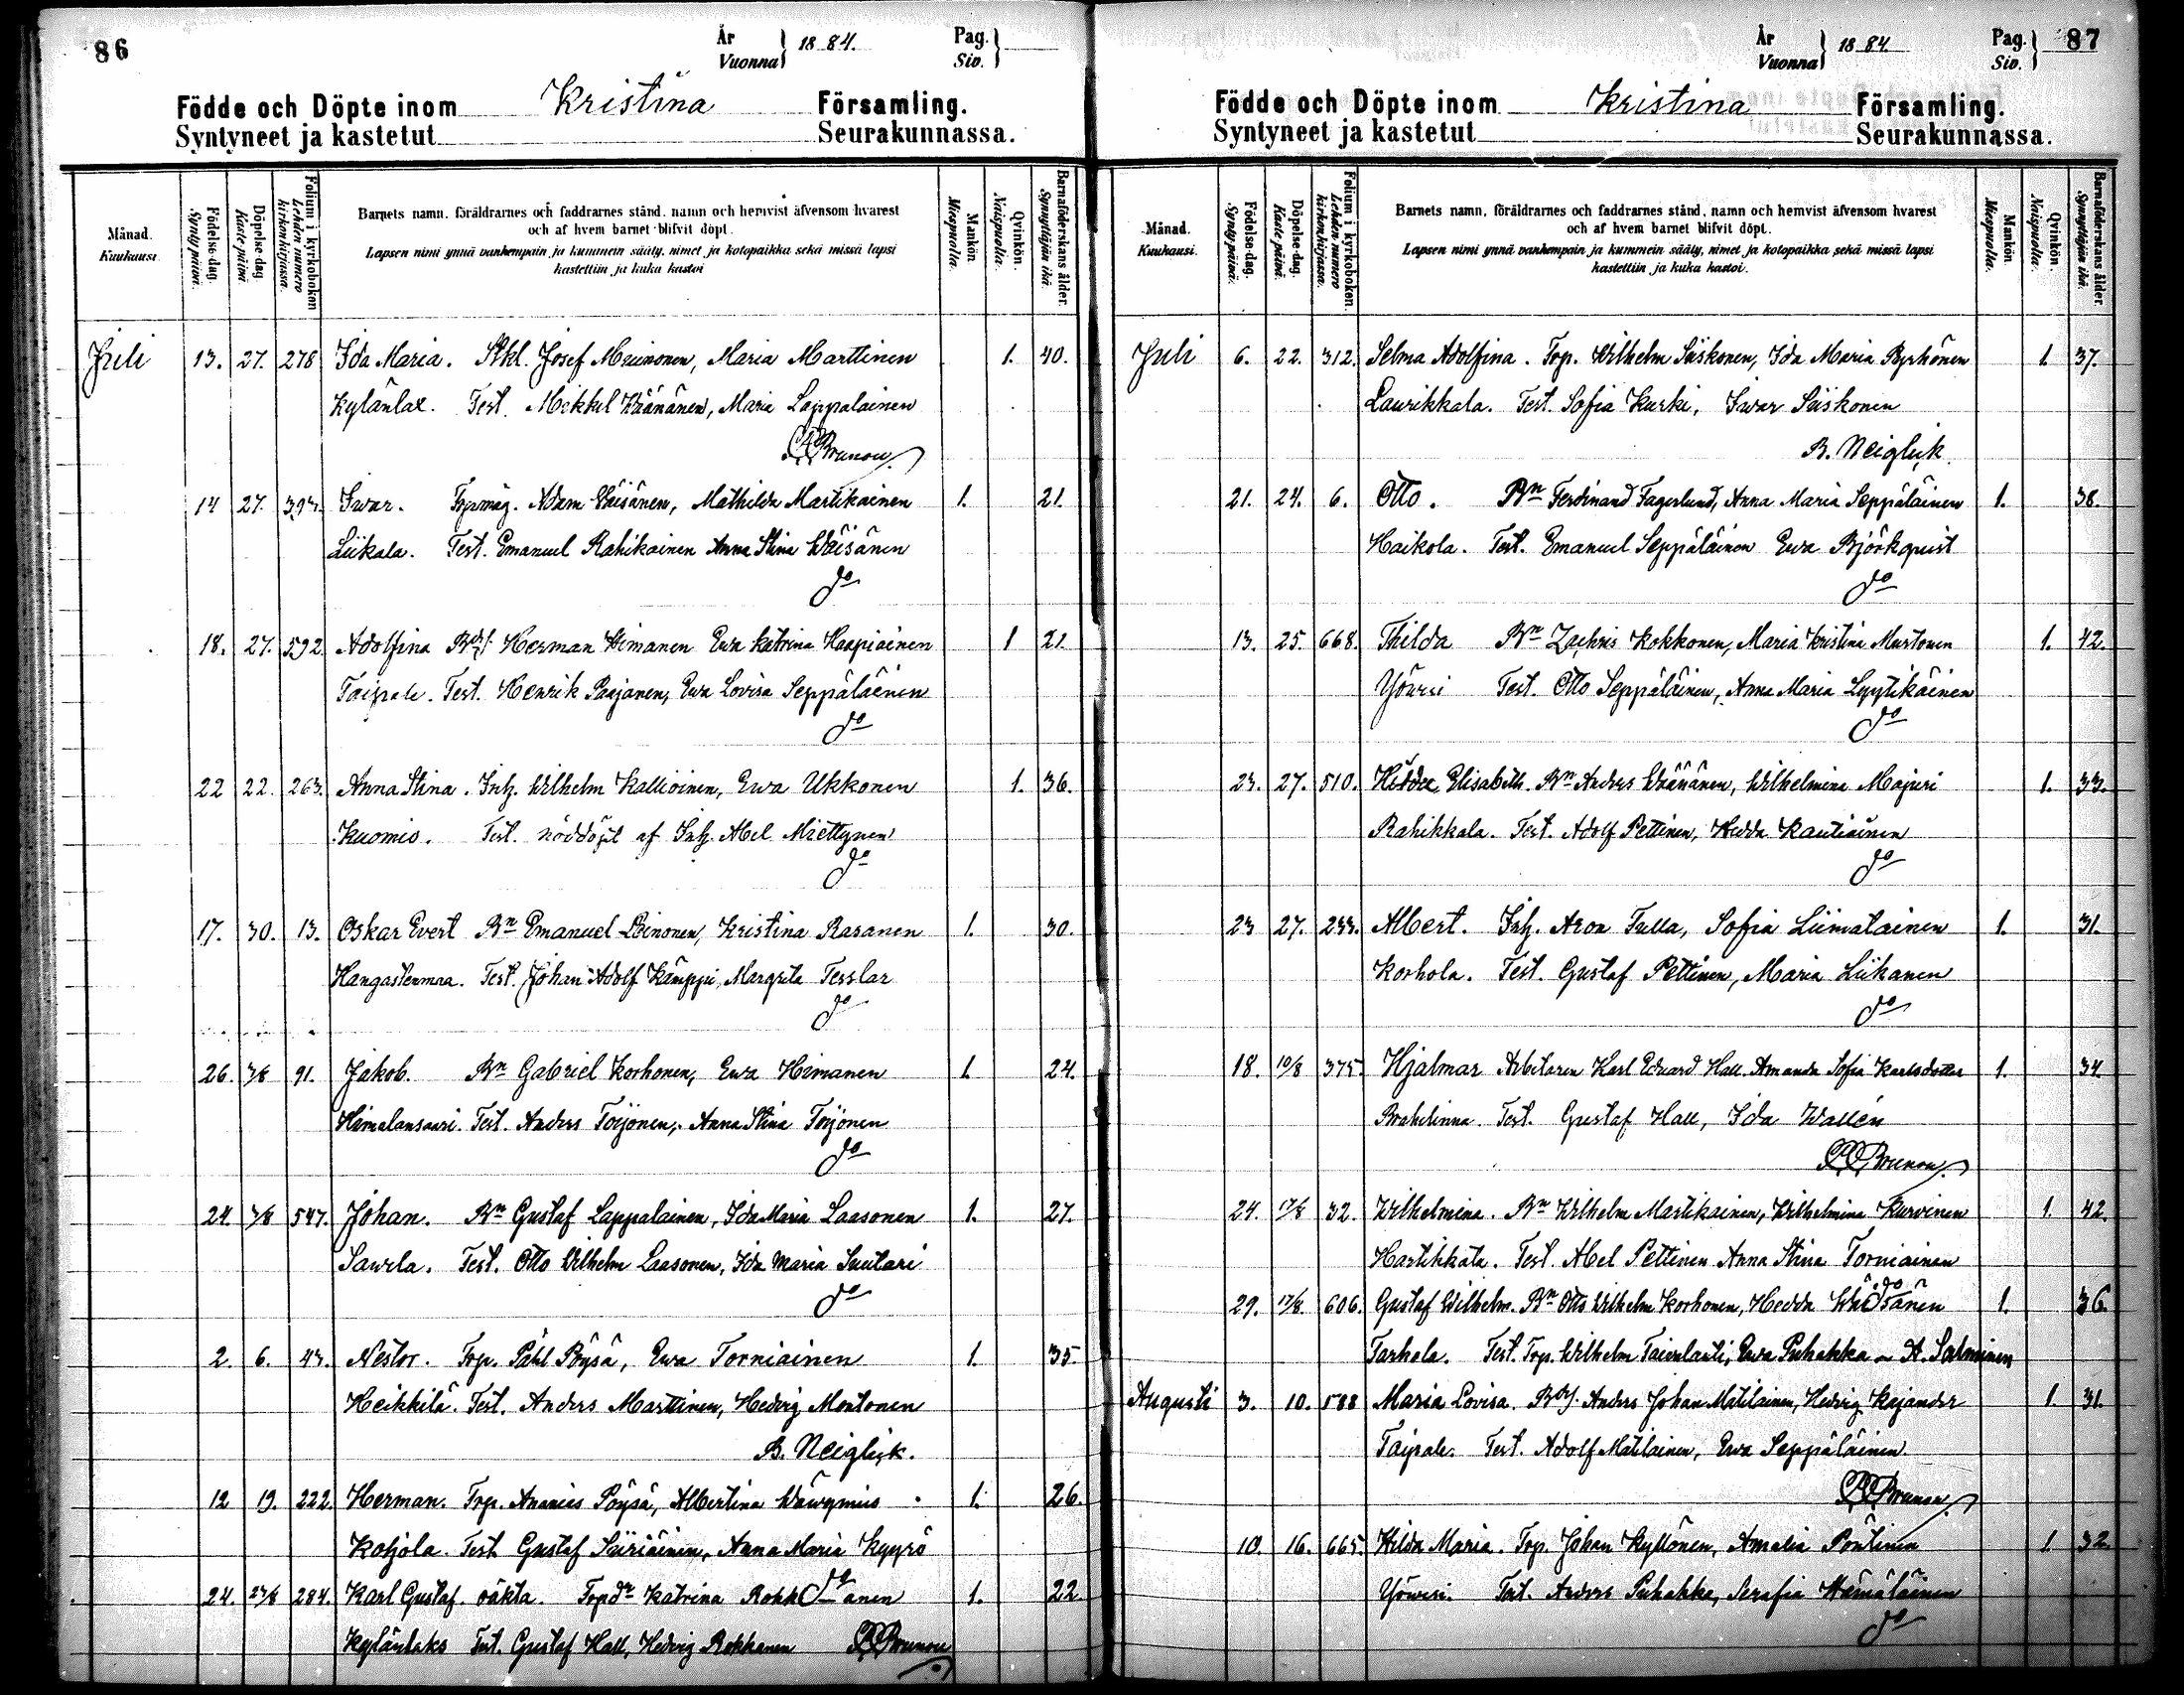 86
År
Vuonna } 1884.
Pag.
Siv. }
Födde och Döpte inom Kristina Församling.
Syntyneet ja kastetut Seurakunnassa.
Månad.
Kuukausi.
Födelse-dag.
Synty-päivä.
Döpelse-dag.
Kaste-päivä.
Folium i kyrkoboken
Lehden numero kirkonkirjassa.
Barnets namn, föräldrarnes och faddrarnes stånd, namn och hemvist äfvensom hvarest
och af hvem barnet blifvit döpt.
Lapsen nimi ynnä vanhempain ja kummein sääty, nimet ja kotopaikka sekä missä lapsi
kastettiin ja kuka kastoi
Mankön.
Miespuolia.
Qvinkön.
Naispuolia.
Barnaföderskans ålder.
Synnyttäjän ikä.
Juli 13. 27. 278 Ida Maria. Josef Maria Marttinen 1. 40.
Kylänlax. Test. Mikkel Väänänen, Maria Lappalainen
Brunou
14 27. 393. Ivar. Adam Väisänen, Mathilda Martikainen 1. 21.
Liikala. Test. Emanuel Rahikainen Anna Stina Wäisänen
do
18. 27. 592 Adolfina Herman Himanen Eva Katrina Haapiainen 1 21.
Taipale. Test. Henrik Paajanen, Eva Lovisa Seppäläinen
do
22 22. 263. Anna Stina. Inh. Wilhelm Kallioinen, Ewa Ukkonen 1. 36.
Kuomio. Test. nöddöpt af Inh. Abel Miettynen
do
17. 30. 13. Oskar Evert Bn Emanuel Leinonen, Kristina Rasanen 1. 30.
Hangastenmaa. Test. Johan Adolf Kämppi, Margreta Tesslar
do
26. 3/8 91. Jakob. Bn Gabriel Korhonen, Ewa Himanen 1. 24.
Himalansaari. Test. Anders Toijonen, Anna Stina Toijonen
do
24 3/8 547. Johan. Bn Gustaf Lappalainen, Ida Maria Laasonen 1. 27.
Sawela. Test. Otto Wilhelm Laasonen, Ida Maria Suutari
do
2. 6. 43. Nestor. Trp. Påhl Pöysä, Ewa Torniainen 1. 35.
Heikkilä. Test. Anders Marttinen, Hedvig Montonen
B. Neiglick.
12 19. 222. Herman. Trp. Ananias Pöysä, Albertina 1. 26.
Koljola. Test. Gustaf Siiriäinen, Anna Maria Kyyrö
do
24. 23/8 284. Karl Gustaf. oäkta. Katrina Rokkanen 1. 22
Kylänlaks Test. Gustaf Hall, Hedvig Rokkanen Brunou
År
Vuonna } 1884.
Pag.
Siv. } 87
Födde och Döpte inom Kristina Församling.
Syntyneet ja kastetut Seurakunnassa.
Månad.
Kuukausi.
Födelse-dag.
Synty-päivä.
Döpelse-dag.
Kaste-päivä.
Folium i kyrkoboken.
Lehden numero kirkonkirjassa.
Barnets namn, föräldrarnes och faddrarnes stånd, namn och hemvist äfvensom hvarest
och af hvem barnet blifvit döpt.
Lapsen nimi ynnä vanhempain ja kummein sääty, nimet ja kotopaikka sekä missä lapsi
kastettiin ja kuka kastoi.
Mankön.
Miespuolia.
Qvinkön.
Naispuolia.
Barnaföderskans ålder.
Synnyttäjän ikä.
Juli 6. 22. 312. Selma Adolfina. Trp. Wilhelm Siiskonen, Ida Maria Pyrhönen 1. 37.
Laurikkala. Test. Sofia Kurki, Iwar Siiskonen
B. Neiglick.
21. 24. 6. Otto. Bn Ferdinand Fagerlund, Anna Maria Seppäläinen 1. 38.
Haikola. Test. Emanuel Seppäläinen Ewa Björkqvist
do
13. 25. 668. Thilda Bn Zachris Kokkonen, Maria Kristina Murtonen 1. 42.
Yöwesi Test. Otto Seppäläinen, Anna Maria Lyytikäinen
do
23. 27. 510. Hedda Elisabeth. Bn Anders Wäänänen, Wilhelmina Majuri 1. 33.
Rahikkala. Test. Adolf Pettinen, Hedda Kautiainen
do
23 27. 233. Albert. Inh. Aron Tulla, Sofia Liimatainen 1. 31.
Korhola. Test. Gustaf Pettinen, Maria Liikanen
do
18. 10/8 375. Hjalmar Arbetaren Karl Edvard Hall. Amanda Sofia Karlsdotter 1. 34.
Brahelinna. Test. Gustaf Hall, Ida Wallén
Brunou
24. 17/8 32. Wilhelmina. Bn Wilhelm Martikainen, Wilhelmina Kurvinen 1. 42.
Hartikkala. Test. Abel Pettinen Anna Stina Torniainen
do
29. 17/8. 606. Gustaf Wilhelm. Bn Otto Wilhelm Korhonen, Hedda Wäisänen 1. 36.
Tarkela. Test. Trp. Wilhelm Ewa Puhakka ~ A. Salminen
Augusti 3. 10. 588 Maria Lovisa. Anders Johan Matilainen, Hedvig Kajander 1. 31.
Taipale. Test. Adolf Matilainen, Ewa Seppäläinen.
Brunou
10. 16. 665. Hilda Maria. Trp. Johan Kyllönen, Amalia Pöntinen 1. 32.
Yöwesi. Test. Anders Puhakka, Serafia Hämäläinen
do